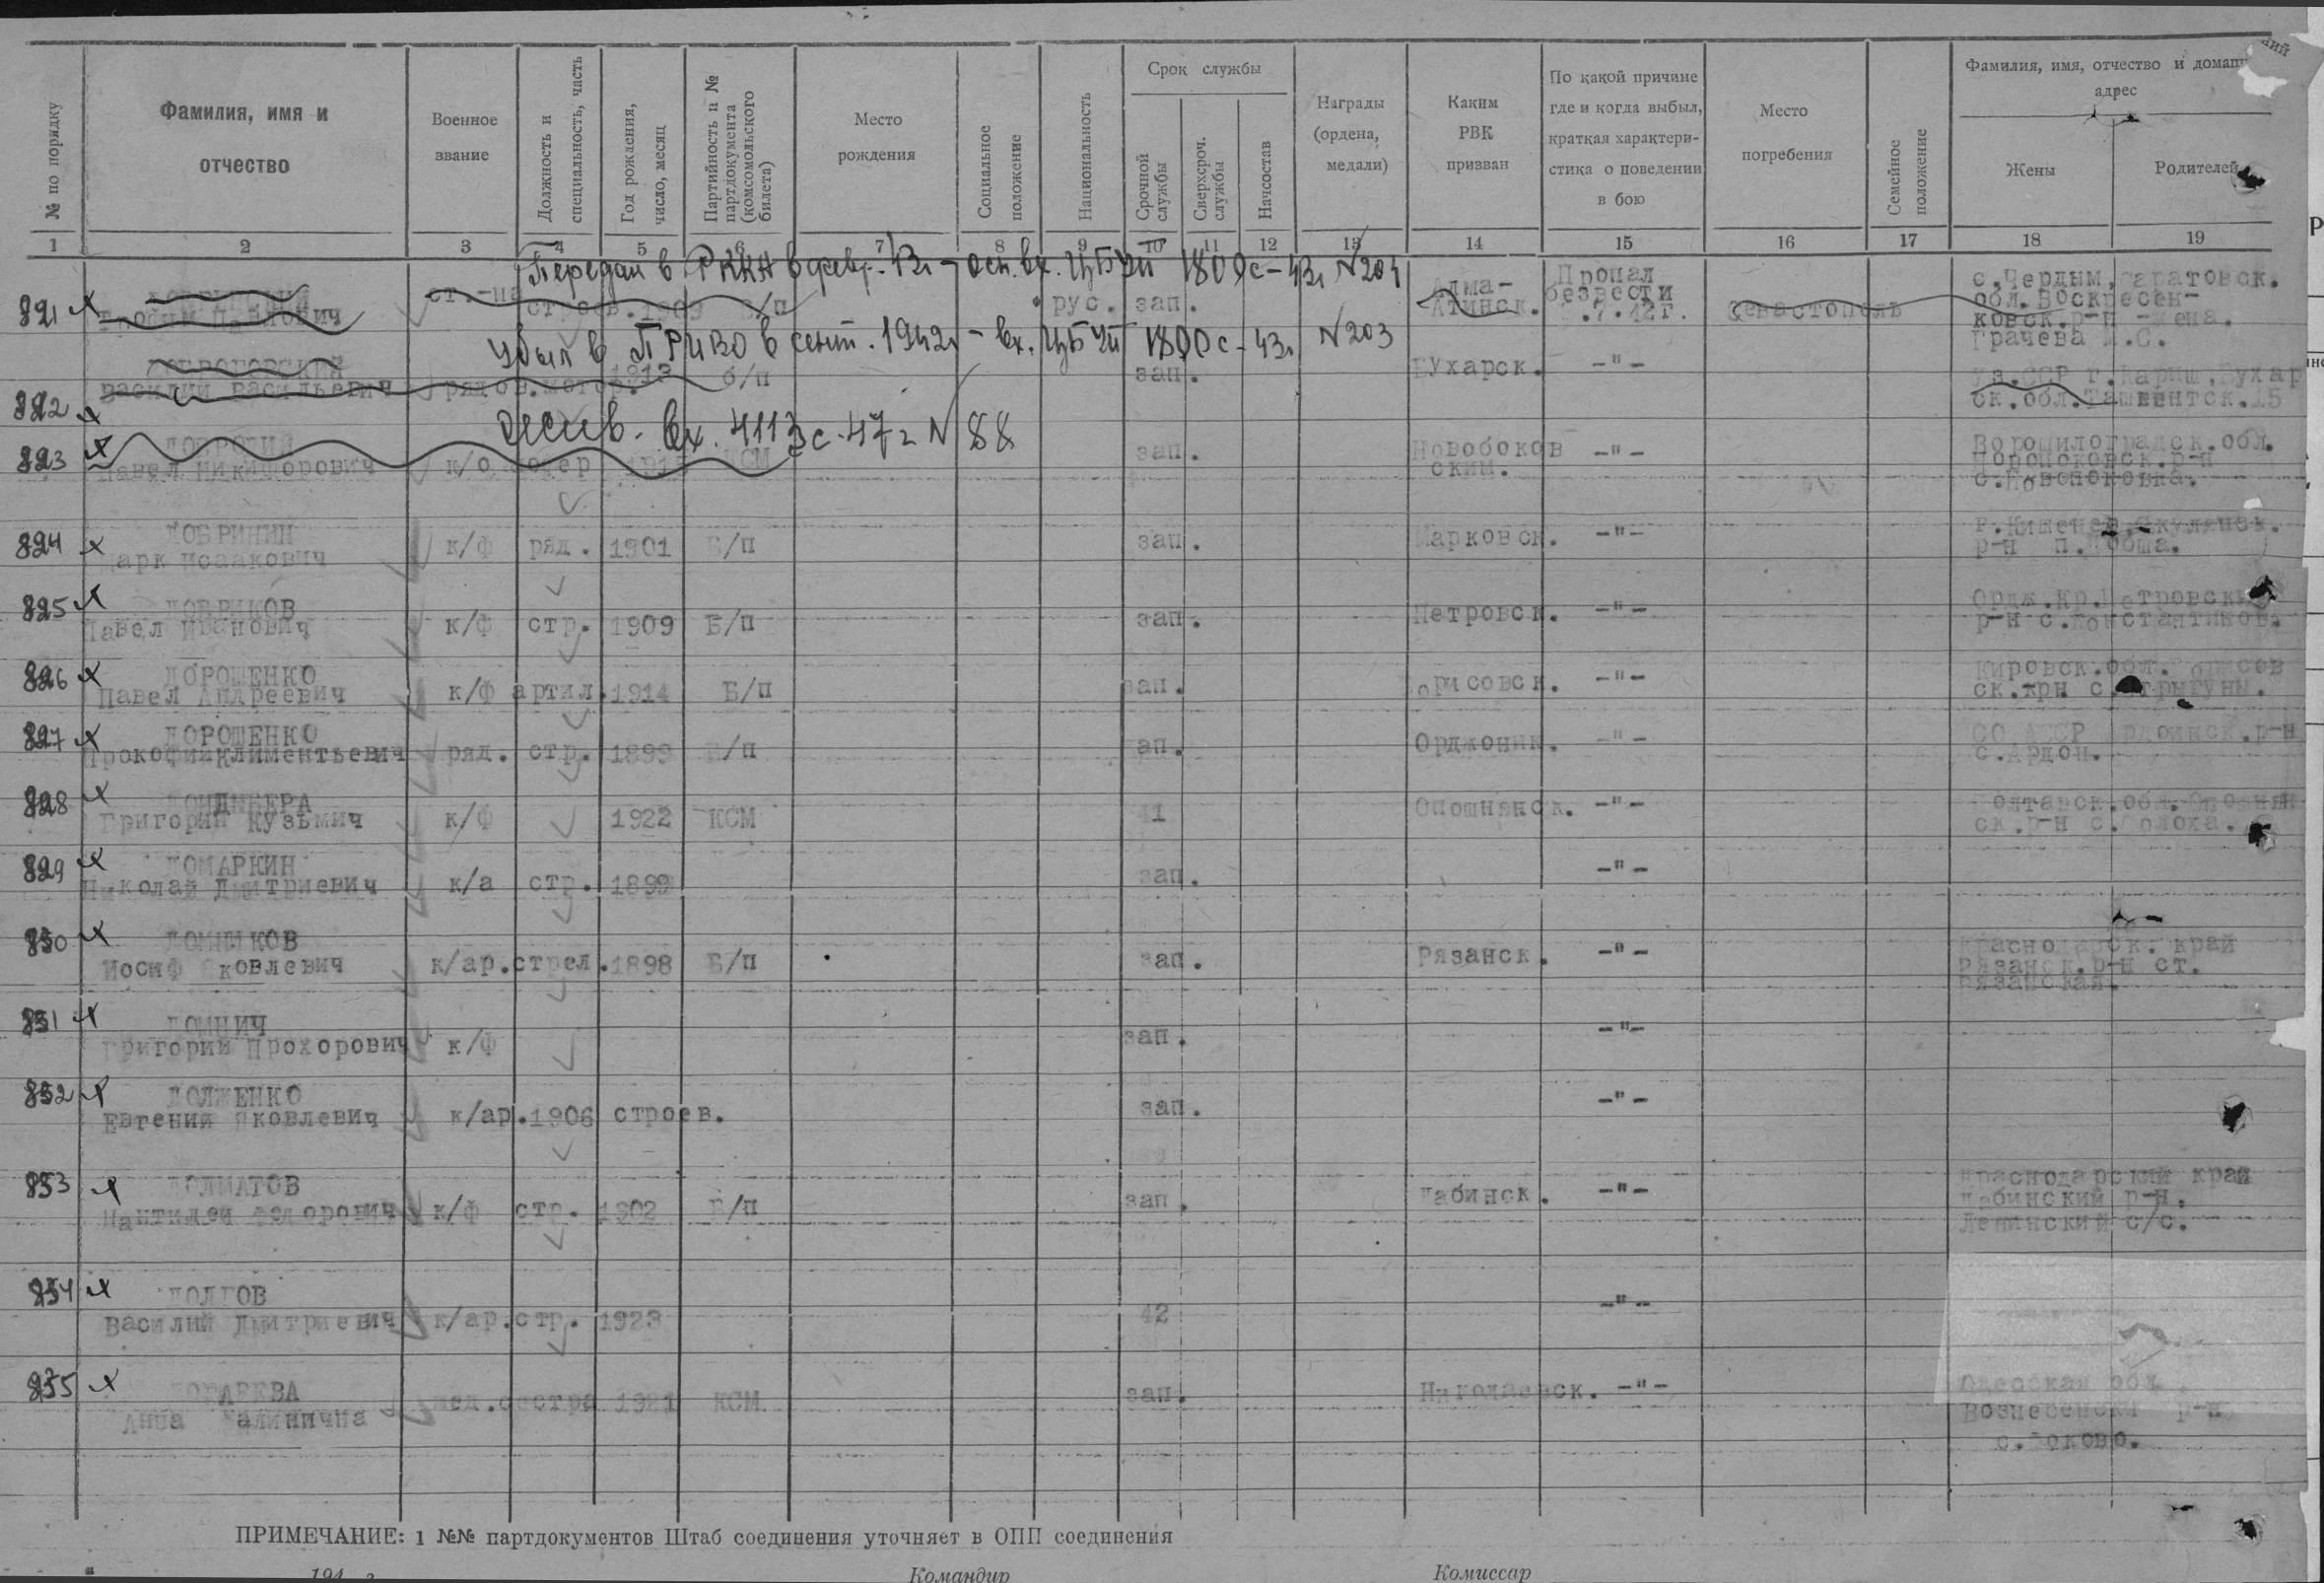 № по порядку
Фамилия, имя и
отчество
Военное
звание
Должность и
специальность, часть
Год рождения,
число, месяц
Партийность и №
партдокумента
(комсомольского
билета)
Место
рождения
Социальное
положение
Национальность
Срок службы
Срочной
службы
Сверхсроч.
службы
Начсостав
Награды
(ордена,
медали)
Каким
РВК
призван
По какой причине
где и когда выбыл,
краткая характери-
стика о поведении
в бою
Место
погребения
Семейное
положение
Фамилия, имя, отчество и домашний
адрес
Жены
Родителей
1 2 3 4 5 6 7 8 9 10 11 12 13 14 15 16 17 18 19
Передан в РККА в февр. 43г - осн. вх. ЦБУП 1809с-43г №204
821 Павлович
ст.-на строев. 1909 б/п рус. зап. Алма-
Атинск. Пропал
безвести
.7.42г. Севастополь с.Чердым, Саратовск.
обл. Воскресен-
ковск.р-н -жена.
Грачева .С.
Убыл в ПРИВО в сент. 1942г - вх. ЦБУП 1800с-43г №203
822 Василий Васильевич рядов. 1913 б/п зап. Бухарск. -"- Уз.ССР г. Бухар
ск.обл.Ташкентск.15
вх. 4113с-47г № 88
823 Павел Никифорович к/о КСМ зап. Новобоков
ским. -"- Ворошиловградск.обл.
824 ДОБРИНИН
Марк Исаакович к/ф ряд. 1901 Б/п зап. Марковск. -"- г.Кишенев,Скулянск.
р-н п.
825 ДОБРИКОВ
Павел Иванович к/ф стр. 1909 Б/п зап. Петровск. -"- Ордж.кр.Петровский
р-н с.Константинов.
826 ДОРОШЕНКО
Павел Андреевич к/ф артил. 1914 Б/п зап. Борисовск. -"- Кировск.обл. Борисов
ск.крн с.Стригуны.
827 ДОРОШЕНКО
Прокофий Климентьевич ряд. стр. 1899 Б/п зап. Орджоник. -"- СО АССР Ардоинск.р-н
с.Ардон.
828
Григорий Кузьмич к/ф 1922 КСМ 41 Опошнянск. -"- Полтавск.обл.Опошнян
ск.р-н с.
829 ДОМАРКИН
Николай Дмитриевич к/а стр. 1899 зап. -"-
830 ДОМНИКОВ
Иосиф Яковлевич к/ар. стрел. 1898 Б/п зап. Рязанск. -"- Краснодарск. край
Рязанск.р-н ст.
Рязанская.
831 ДОМНИЧ
Григорий Прохорович к/ф зап. -"-
832 ДОЛЖЕНКО
Евгений Яковлевич к/ар. 1906 строев. зап. -"-
833 ДОЛМАТОВ
Пантилей Федорович к/ф стр. 1902 Б/п зап. Лабинск. -"- Краснодарский край
Лабинский р-н.
Ленинский с/с.
834 ДОЛГОВ
Василий Дмитриевич к/ар. стр. 1923 42 -"-
835
Анна Калинична мед.сестра 1921 КСМ зап. Николаевск. -"- Одесская обл.
Вознесенский р-н
ПРИМЕЧАНИЕ: 1 №№ партдокументов Штаб соединения уточняет в ОПП соединения
194 г.
Командир
Комиссар